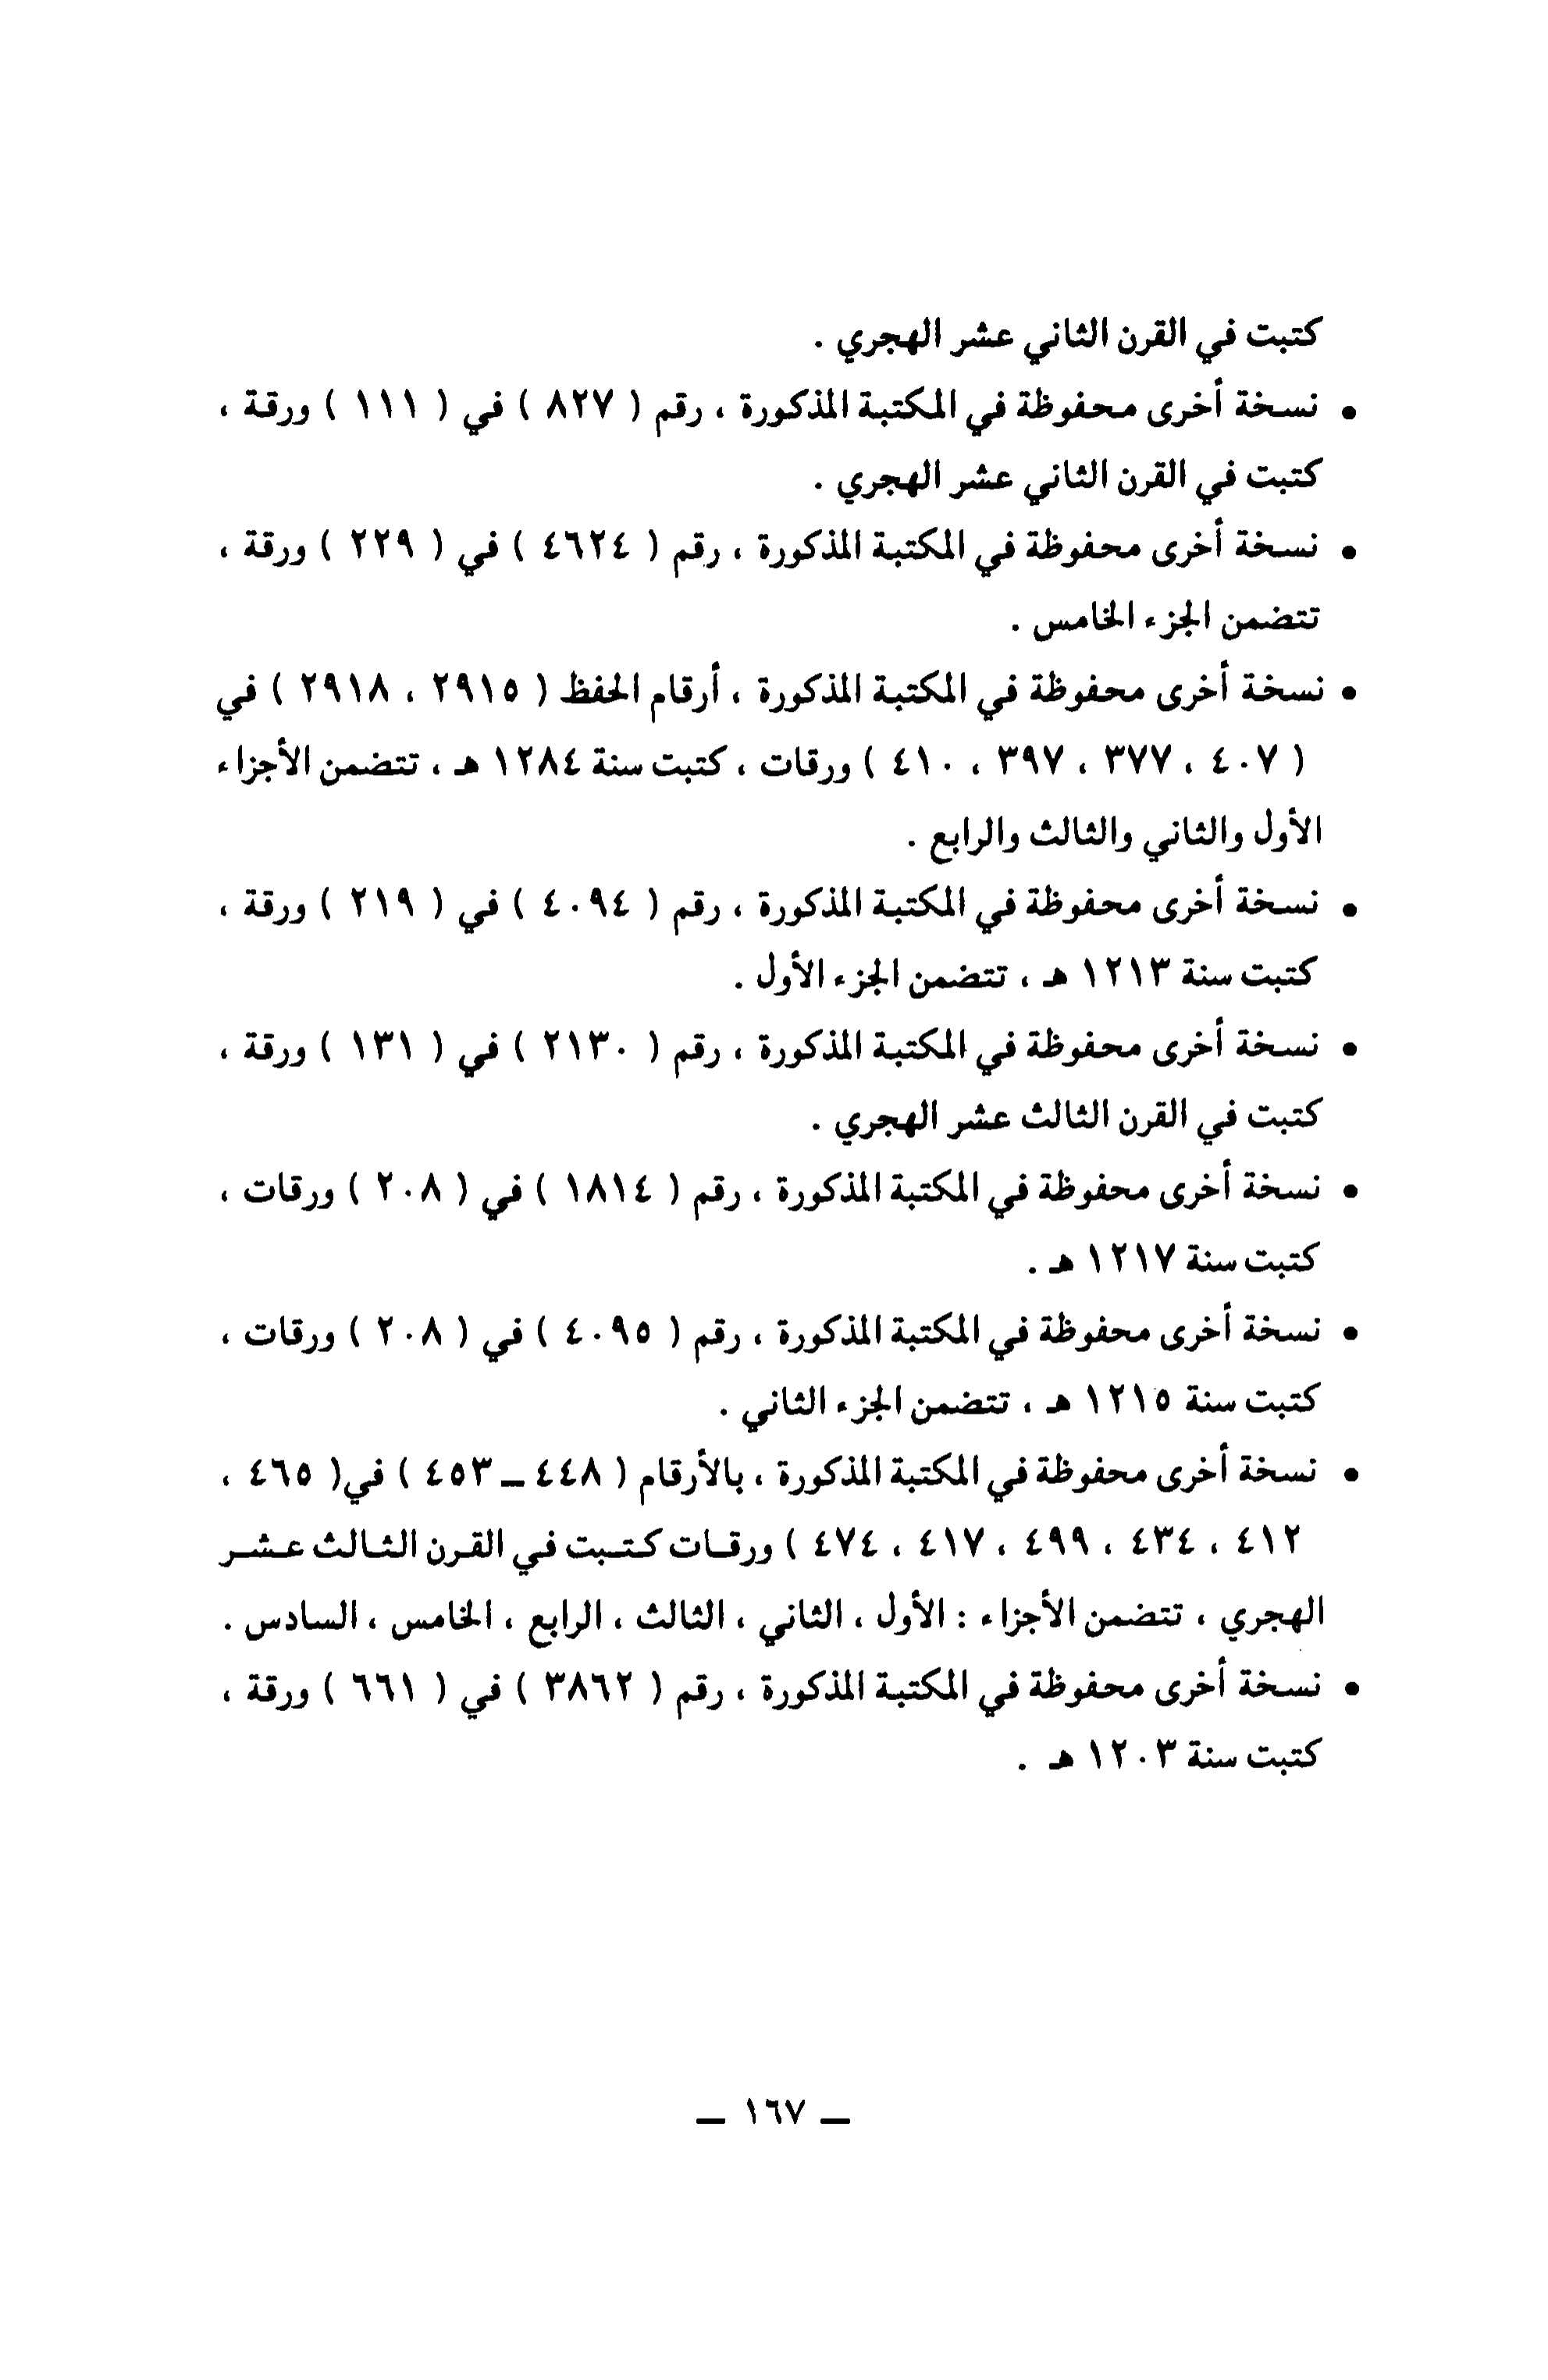 كتبت في القرن الثاني عشر الهجري .
• نسخة أخرى محفوظة في المكتبة المذكورة ، رقم ( ٨٢٧ ) في ( ١١١ ) ورقة ،
كتبت في القرن الثاني عشر الهجري .
• نسخة أخرى محفوظة في المكتبة المذكورة ، رقم ( ٤٦٢٤ ) في ( ٢٢٩ ) ورقة ،
تتضمن الجزء الخامس .
• نسخة أخرى محفوظة في المكتبة المذكورة ، أرقام الحفظ ( ٢٩١٥ ، ٢٩١٨ ) في
( ٤٠٧ ، ٣٧٧ ، ٣٩٧ ، ٤١٠ ) ورقات ، كتبت سنة ١٢٨٤ هـ ، تتضمن الأجزاء
الأول والثاني والثالث والرابع .
• نسخة أخرى محفوظة في المكتبة المذكورة ، رقم ( ٤٠٩٤ ) في ( ٢١٩ ) ورقة ،
كتبت سنة ١٢١٣ هـ ، تتضمن الجزء الأول .
• نسخة أخرى محفوظة في المكتبة المذكورة ، رقم ( ٢١٣٠ ) في ( ١٣١ ) ورقة ،
كتبت في القرن الثالث عشر الهجري .
• نسخة أخرى محفوظة في المكتبة المذكورة ، رقم ( ١٨١٤ ) في ( ٢٠٨ ) ورقات ،
كتبت سنة ١٢١٧ هـ .
• نسخة أخرى محفوظة في المكتبة المذكورة ، رقم ( ٤٠٩٥ ) في ( ٢٠٨ ) ورقات ،
كتبت سنة ١٢١٥ هـ ، تتضمن الجزء الثاني .
• نسخة أخرى محفوظة في المكتبة المذكورة ، بالأرقام ( ٤٤٨ ــ ٤٥٣ ) في( ٤٦٥ ،
٤١٢ ، ٤٣٤ ، ٤٩٩ ، ٤١٧ ، ٤٧٤ ) ورقات كتبت في القرن الثالث عشر
الهجري ، تتضمن الأجزاء : الأول ، الثاني ، الثالث ، الرابع ، الخامس ، السادس .
• نسخة أخرى محفوظة في المكتبة المذكورة ، رقم ( ٣٨٦٢ ) في ( ٦٦١ ) ورقة ،
كتبت سنة ١٢٠٣ هـ .
ــ ١٦٧ ــ